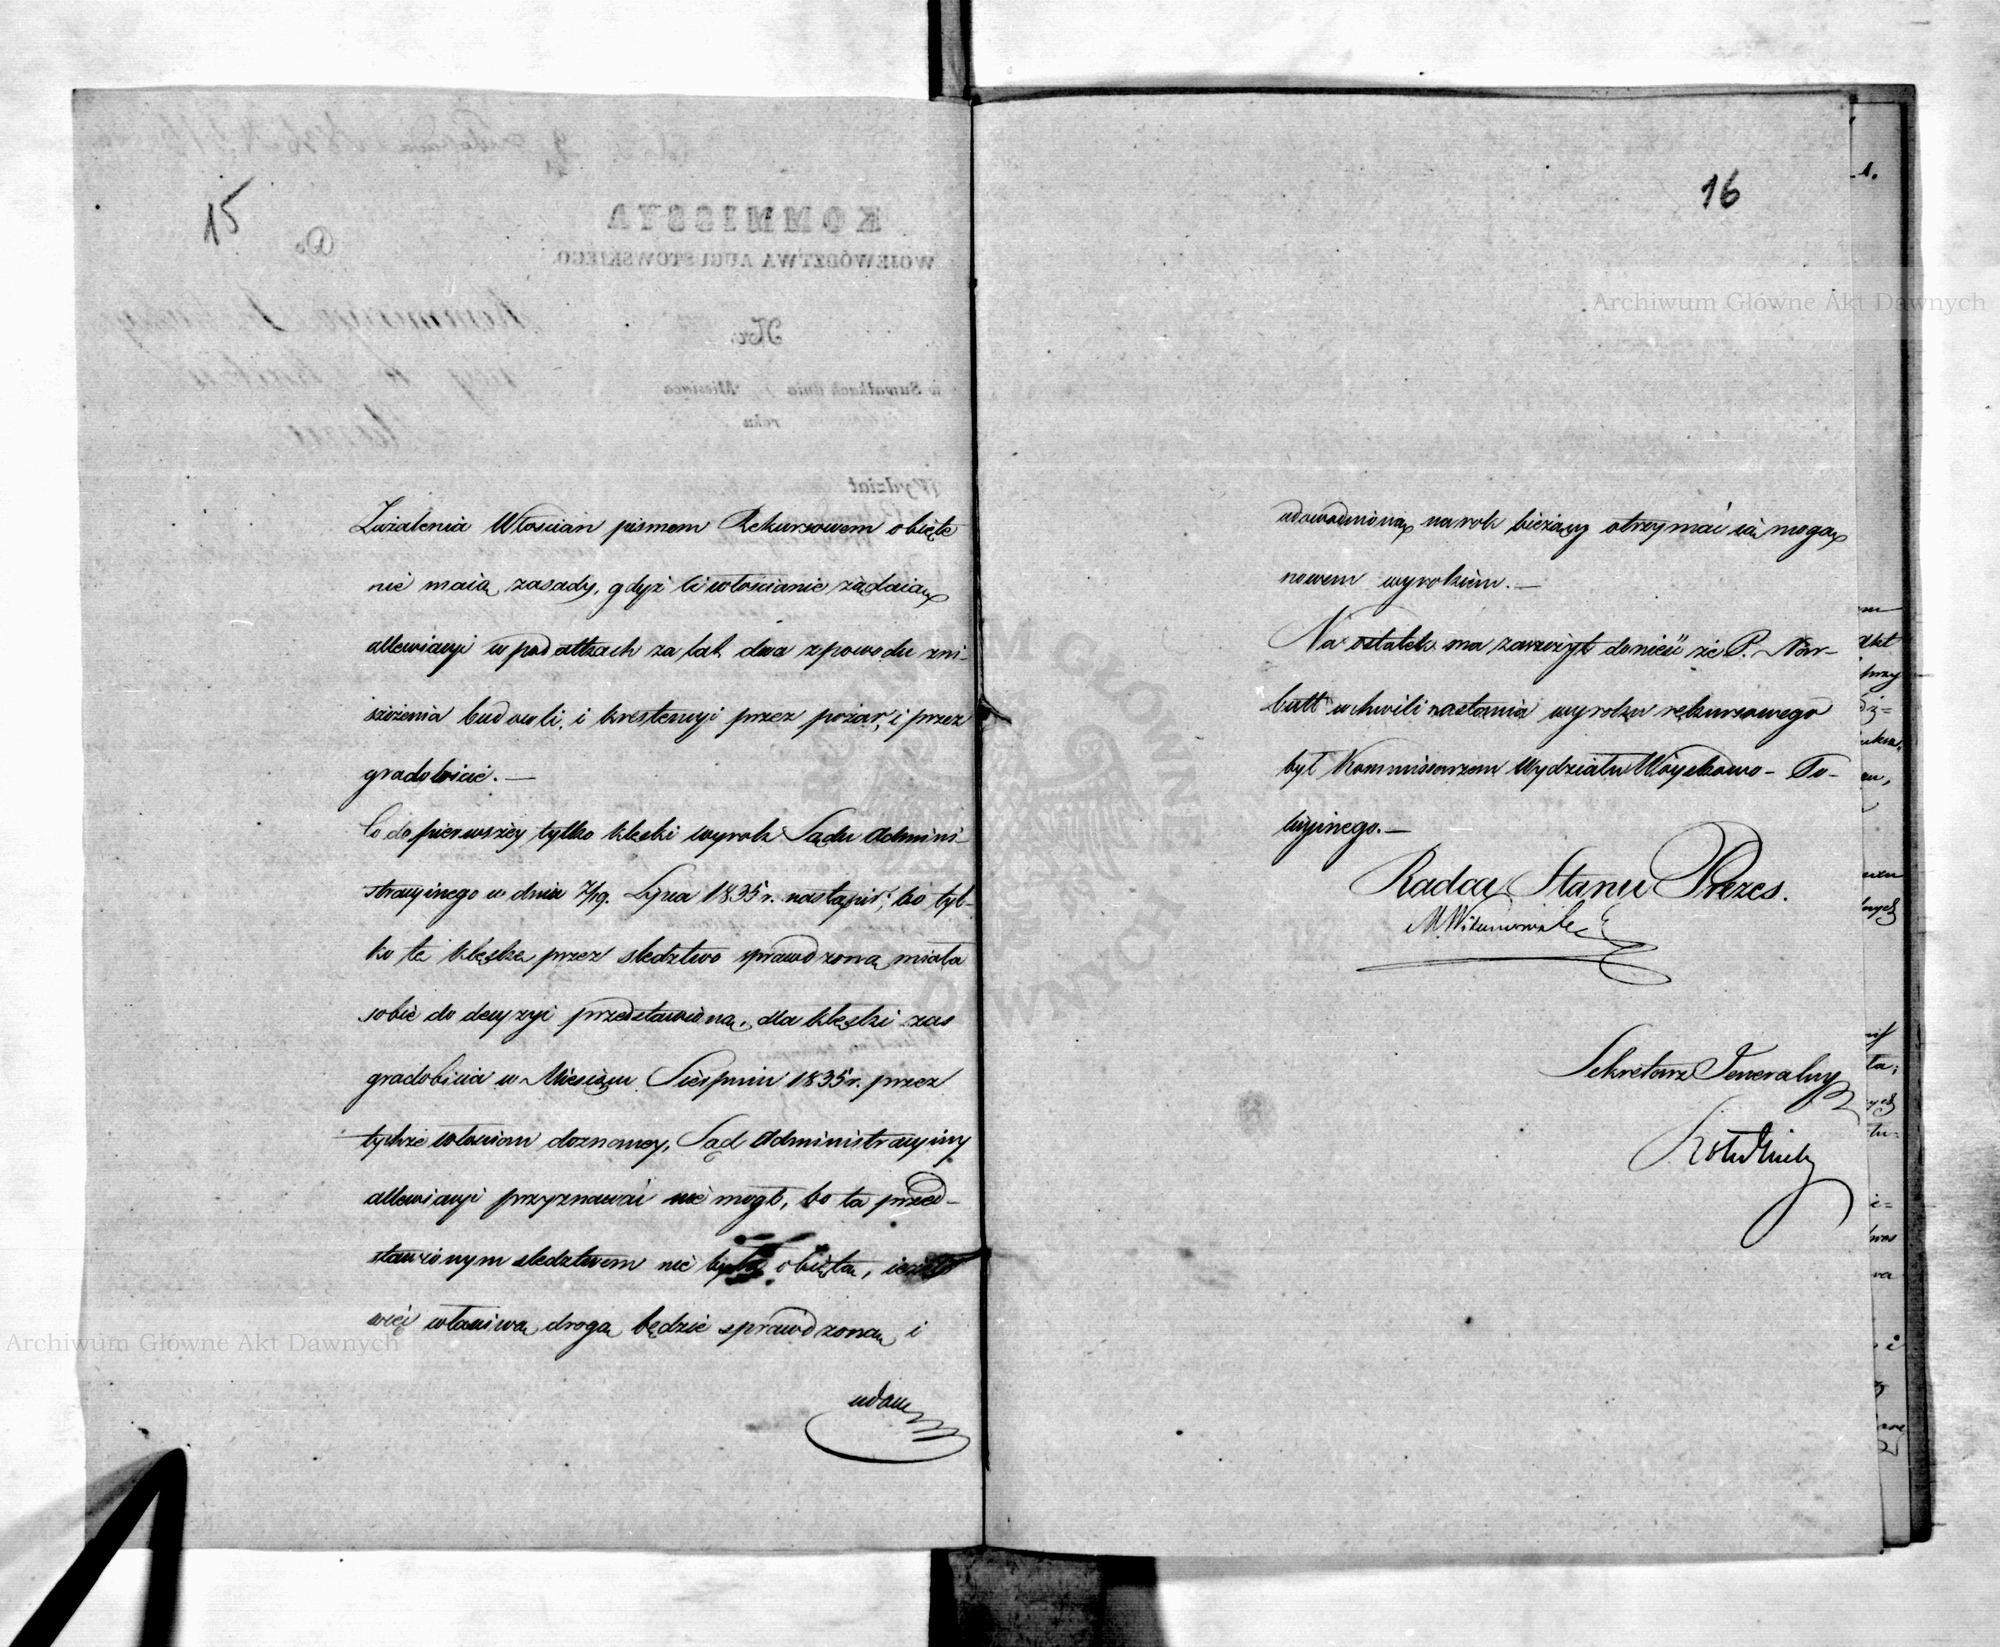 15
Zażalenia Włościan pismem Rekursowem obięte
nie maią zasady, gdyż ci włościanie żądaią
allewiacyi w podatkach za lat dwa z powodu zni-
szczenia budowli, i krestencyi przez pożar, i przez
gradobicie. —
Co do pierwszéy tylko klęski wyrok Sądu Admini-
stracyinego w dniu 7/19. Lipca 1835 r. nastąpił, bo tyl-
ko tę klęskę przez śledztwo sprawdzoną miała
sobie do decyzyi przedstawioną, dla klęski zaś
gradobicia w Miesiącu Sierpniu 1835 r. przez
tychże włościan doznaney, Sąd Administracyiny
allewiacyi przyznawać nie mógł, bo ta przed-
stawionym śledztwem nie była obięta, ieżeli
więc właściwą drogą będzie sprawdzoną i
udow
16
udowodnioną na rok bieżący otrzymać ią mogą
nowem wyrokiem. —
Na ostatek ma zaszczyt donieść że P. Nar-
butt w chwili nastania wyroku rekursowego
był Kommissarzem Wydziału Woyskowo- Po-
licyinego. —
Radca Stanu Prezes.
Sekretarz Jeneralny
KOMMISSYA
WOJEWÓDZTWA AUGUSTOWSKIEGO.
Do
Nr.
w Suwałkach dnia Miesiąca
roku
Wydział
Archiwum Główne Akt Dawnych
Archiwum Główne Akt Dawnych